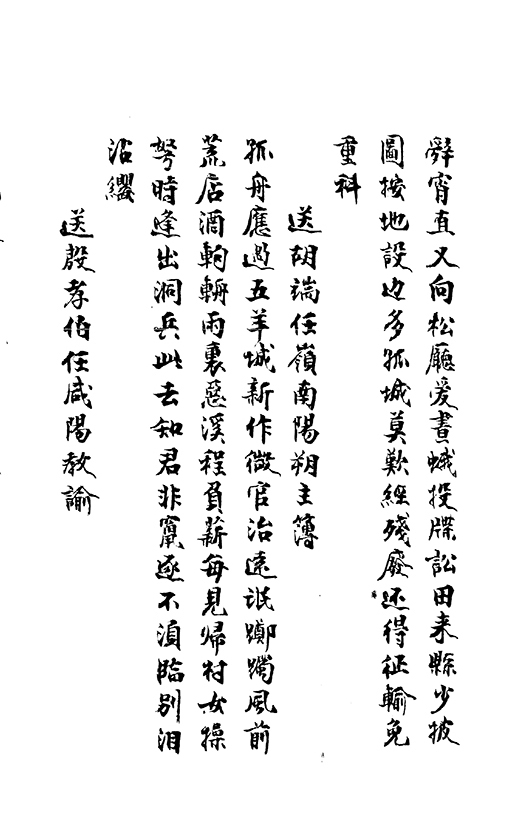 辤宵直又向松廳爱晝蛾投牒訟田来縣少披
圖按地設屯多孤城莫歎經殘廢还得征輸免
重科
送胡端任嶺南陽朔主簿
孤舟應過五羊城新作微官治遠氓躑躅風前
荒店酒軥輈雨裏惡溪程負薪每見歸村女操
弩時逢出洞兵此去知君非竄逐不須臨别泪
沾纓
送殷孝伯任咸陽教諭